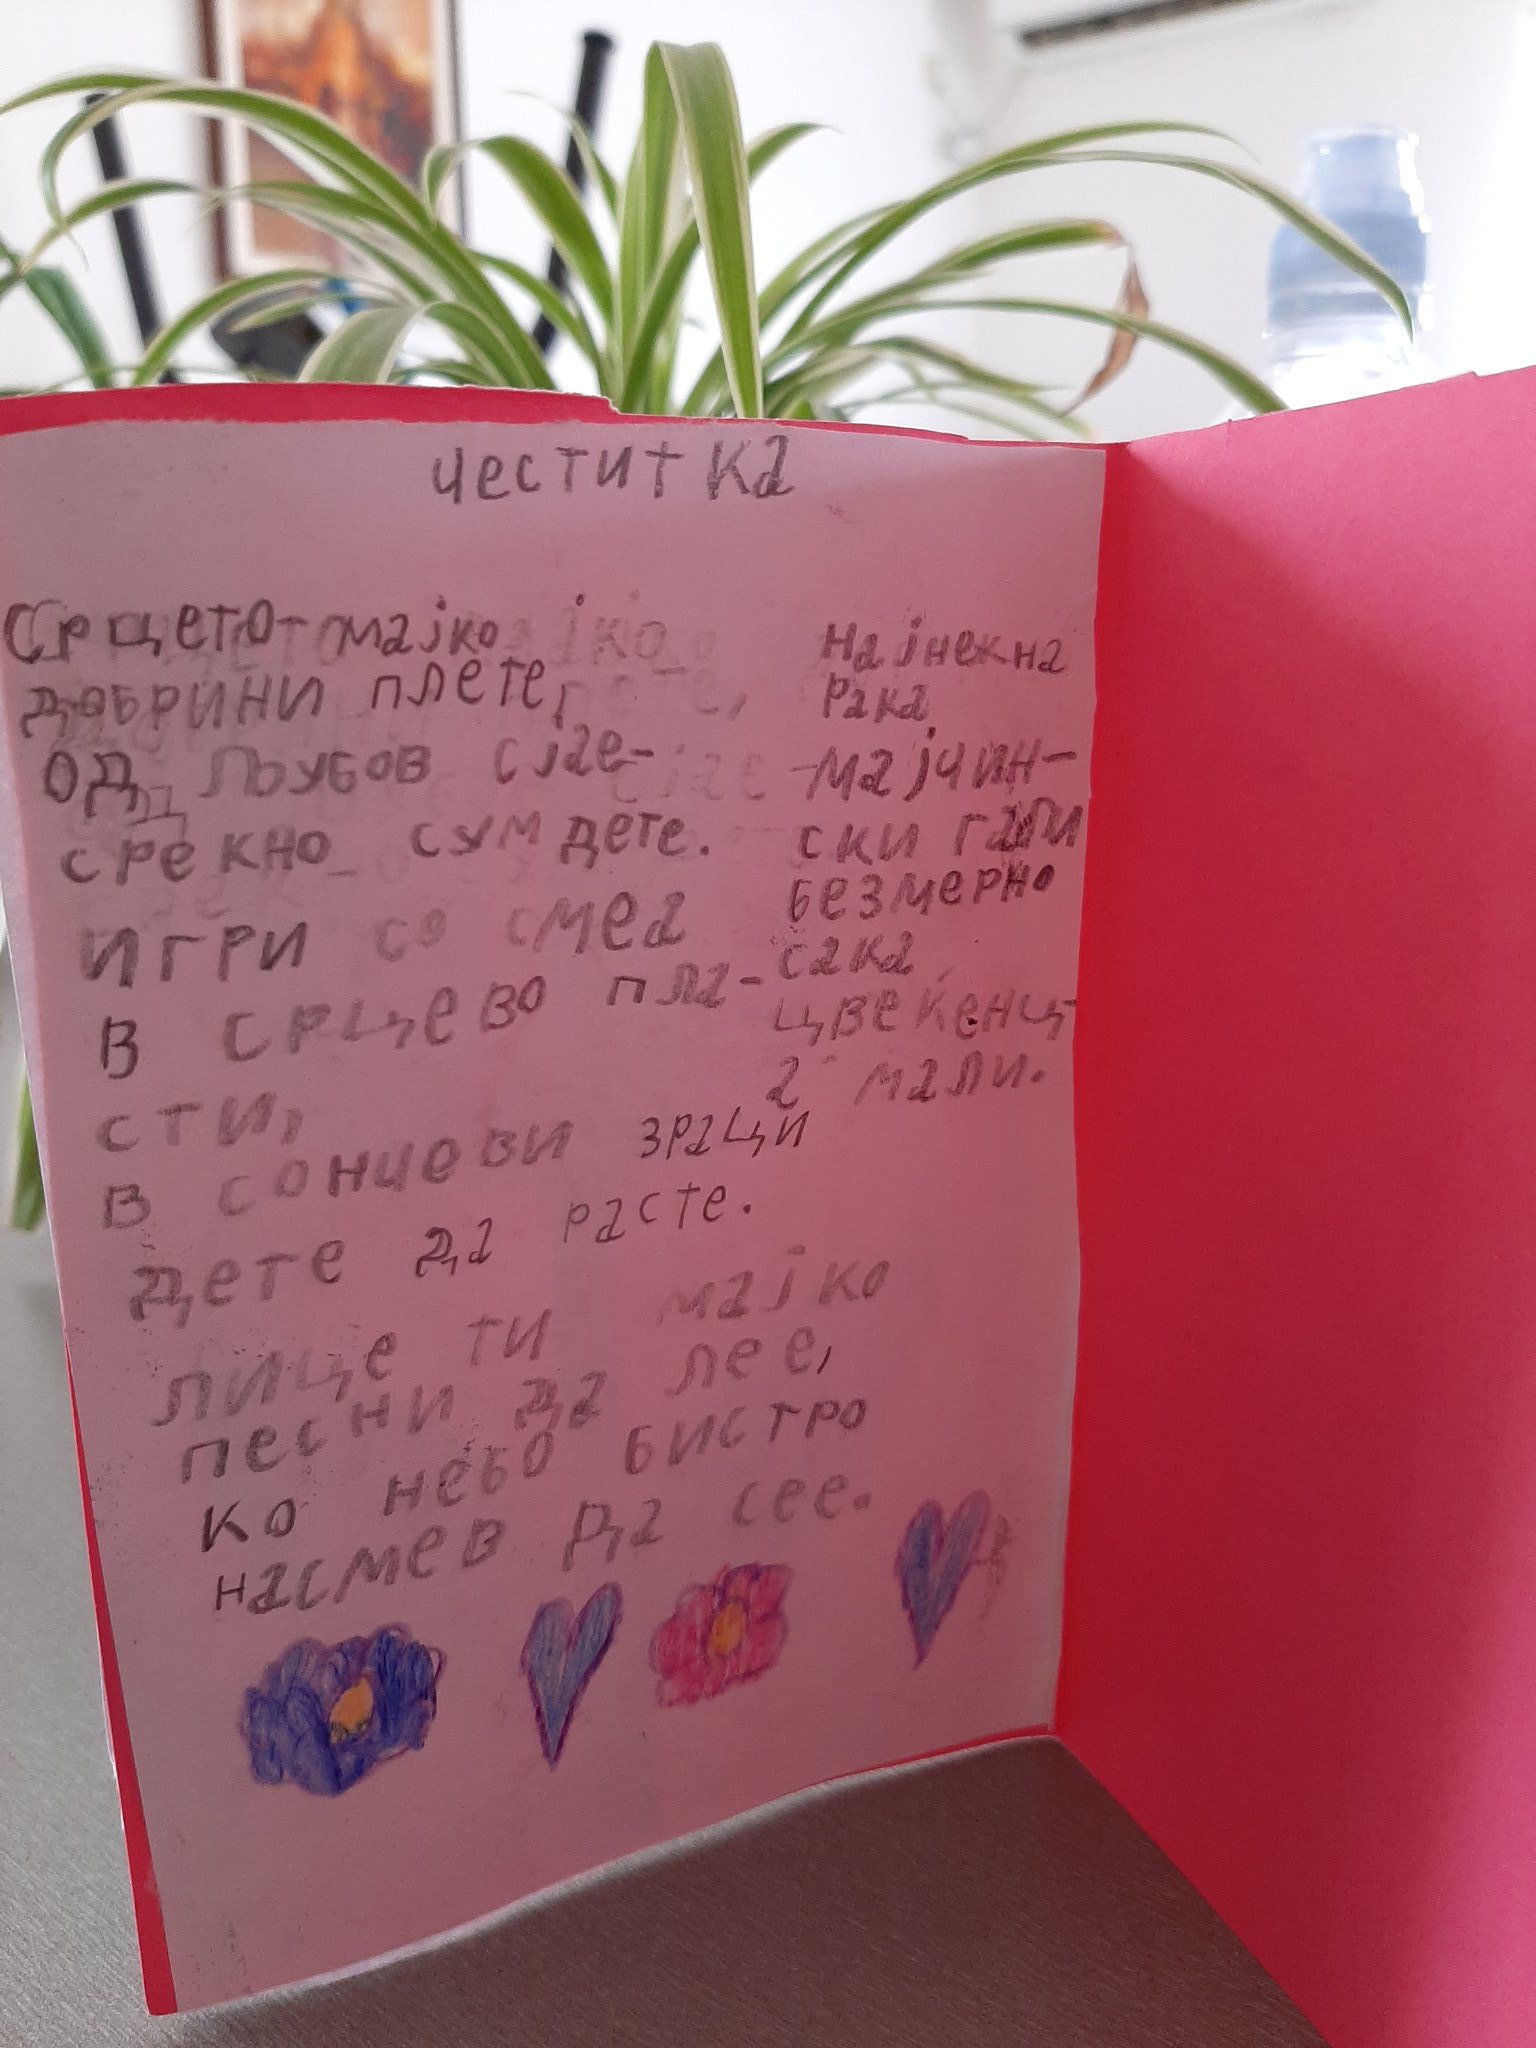 честитка
Срцето-мајко
добрини плете,
од љубов сјае-
среќно сум дете.
игри со смеа
в срцево пла-
сти,
в сончеви зраци
дете да расте.
лице ти мајко
песни да лее,
ко небо бистро
насмев да сее.
најнежна
рака
-мајчин-
ски гали
безмерно
сака
цвеќенц-
а мали.